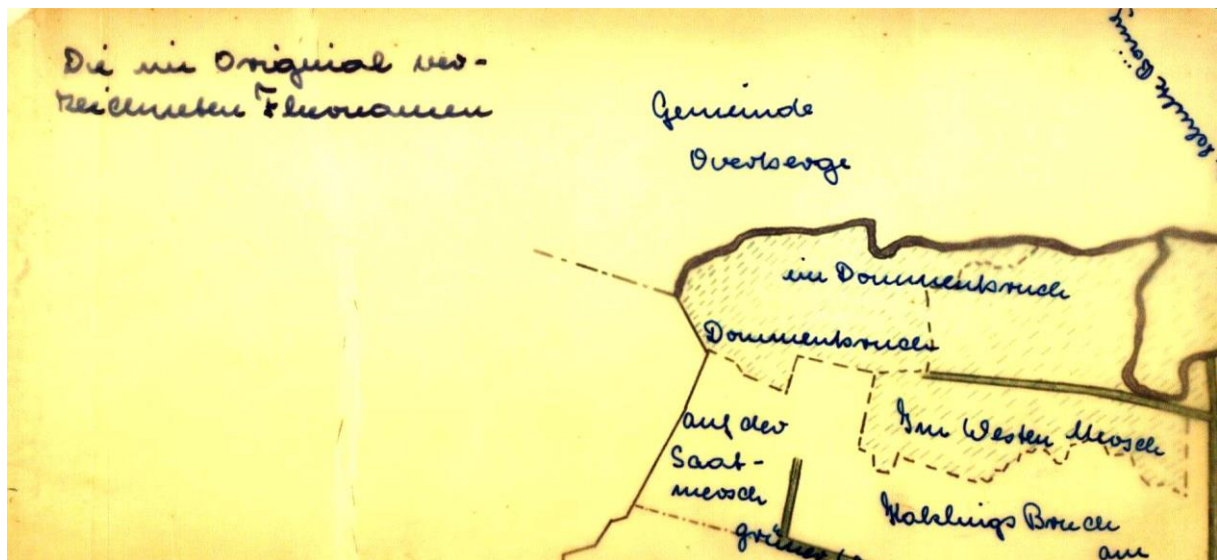 Die im Original ver-
zeichneten Flurnamen
Gemeinde
Overberge
Schulte
im Dommenbruch
Dommenbruch
auf der
Saat-
mersch
Im Westen Mersch
Bruch
am